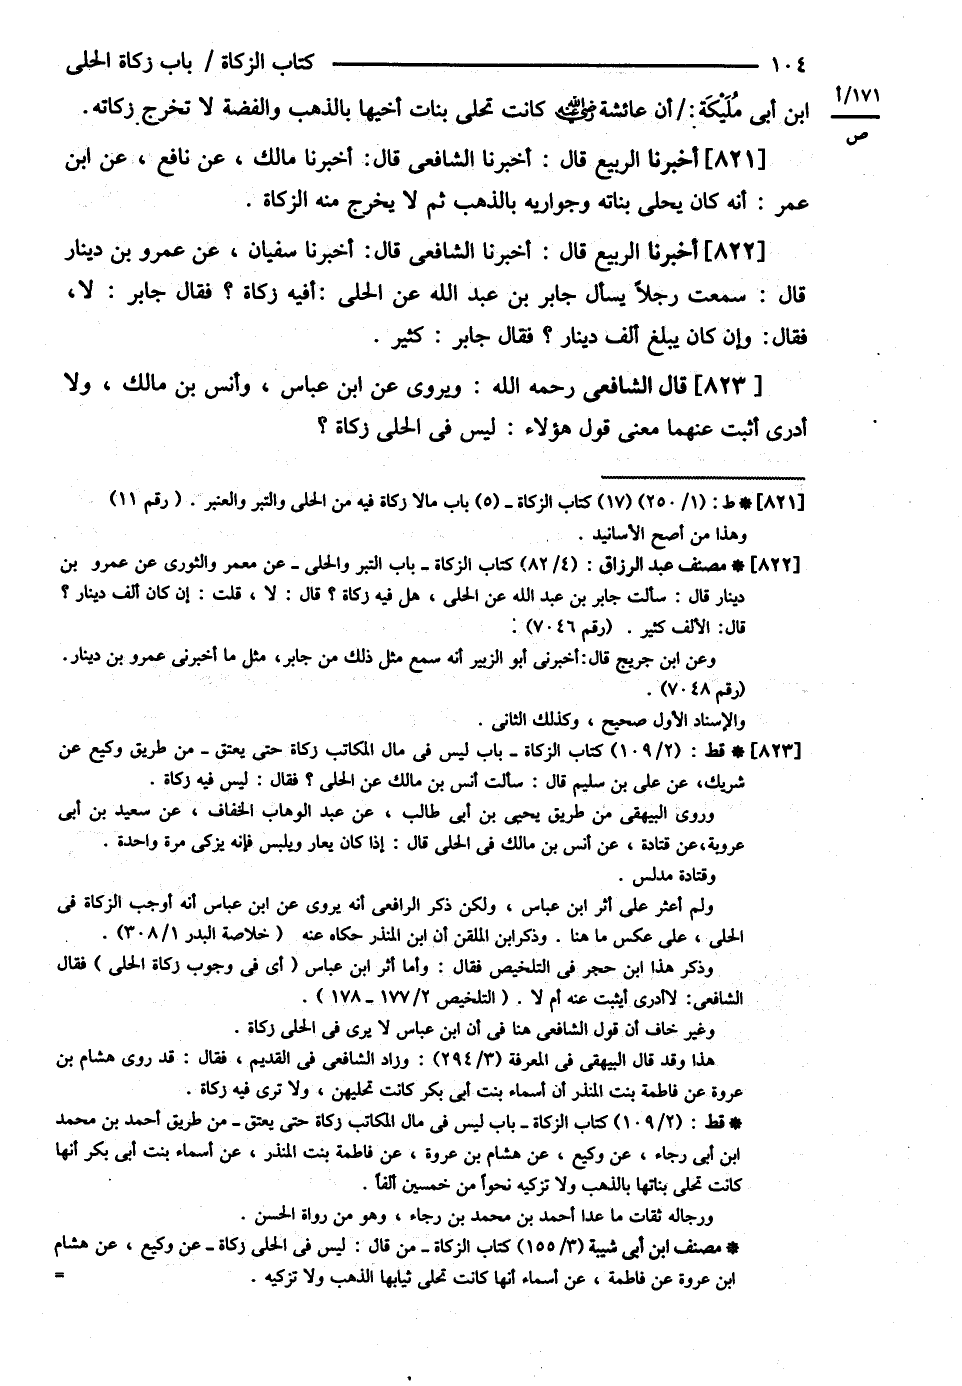 ١٠٤ ــــــــــــــــــــ كتاب الزكاة / باب زكاة الحلى
١٧١/أ
ص
ابن أبى مُلَيْكَة: / أن عائشة رضي الله عنها كانت تحلى بنات أخيها بالذهب والفضة لا تخرج زكاته .
[٨٢١] أخبرنا الربيع قال : أخبرنا الشافعى قال: أخبرنا مالك ، عن نافع ، عن ابن
عمر : أنه كان يحلى بناته وجواريه بالذهب ثم لا يخرج منه الزكاة .
[٨٢٢] أخبرنا الربيع قال : أخبرنا الشافعى قال: أخبرنا سفيان ، عن عمرو بن دينار
قال : سمعت رجلاً يسأل جابر بن عبد الله عن الحلى :أفيه زكاة ؟ فقال جابر : لا،
فقال: وإن كان يبلغ ألف دينار ؟ فقال جابر : كثير .
[ ٨٢٣] قال الشافعى رحمه الله : ويروى عن ابن عباس ، وأنس بن مالك ، ولا
أدرى أثبت عنهما معنى قول هؤلاء : ليس فى الحلى زكاة ؟
[٨٢١] * ط : (١/ ٢٥٠) (١٧) كتاب الزكاة ـ (٥) باب مالا زكاة فيه من الحلى والتبر والعنبر . ( رقم ١١)
وهذا من أصح الأسانيد .
[٨٢٢] * مصنف عبد الرزاق : (٤/ ٨٢) كتاب الزكاة ـ باب التبر والحلى ـ عن معمر والثورى عن عمرو بن
دينار قال : سألت جابر بن عبد الله عن الحلى ، هل فيه زكاة ؟ قال : لا ، قلت : إن كان ألف دينار ؟
قال: الألف كثير . (رقم ٧٠٤٦) .
وعن ابن جريج قال:أخبرنى أبو الزبير أنه سمع مثل ذلك من جابر، مثل ما أخبرنى عمرو بن دينار.
(رقم ٧٠٤٨) .
والإسناد الأول صحيح ، وكذلك الثانى .
[٨٢٣] * قط : (٢/ ١٠٩) كتاب الزكاة ـ باب ليس فى مال المكاتب زكاة حتى يعتق ـ من طريق وكيع عن
شريك، عن على بن سليم قال : سألت أنس بن مالك عن الحلى ؟ فقال : ليس فيه زكاة .
وروى البيهقى من طريق يحيى بن أبى طالب ، عن عبد الوهاب الخفاف ، عن سعيد بن أبى
عروبة،عن قتادة ، عن أنس بن مالك فى الحلى قال : إذا كان يعار ويلبس فإنه يزكى مرة واحدة .
وقتادة مدلس .
ولم أعثر على أثر ابن عباس ، ولكن ذكر الرافعى أنه يروى عن ابن عباس أنه أوجب الزكاة فى
الحلى ، على عكس ما هنا . وذكرابن الملقن أن ابن المنذر حكاه عنه ( خلاصة البدر ١/ ٣٠٨) .
وذكر هذا ابن حجر فى التلخيص فقال : وأما أثر ابن عباس ( أى فى وجوب زكاة الحلى ) فقال
الشافعى: لاأدرى أيثبت عنه أم لا . ( التلخيص ٢/ ١٧٧ ـ ١٧٨ ) .
وغير خاف أن قول الشافعى هنا فى أن ابن عباس لا يرى فى الحلى زكاة .
هذا وقد قال البيهقى فى المعرفة (٣/ ٢٩٤) : وزاد الشافعى فى القديم ، فقال : قد روى هشام بن
عروة عن فاطمة بنت المنذر أن أسماء بنت أبى بكر كانت تحليهن ، ولا ترى فيه زكاة .
* قط : (٢/ ١٠٩) كتاب الزكاة ـ باب ليس فى مال المكاتب زكاة حتى يعتق ـ من طريق أحمد بن محمد
ابن أبى رجاء ، عن وكيع ، عن هشام بن عروة ، عن فاطمة بنت المنذر ، عن أسماء بنت أبى بكر أنها
كانت تحلى بناتها بالذهب ولا تزكيه نحواً من خمسين ألفاً .
ورجاله ثقات ما عدا أحمد بن محمد بن رجاء ، وهو من رواة الحسن .
* مصنف ابن أبى شيبة (٣/ ١٥٥) كتاب الزكاة ـ من قال : ليس فى الحلى زكاة ـ عن وكيع ، عن هشام
ابن عروة عن فاطمة ، عن أسماء أنها كانت تحلى ثيابها الذهب ولا تزكيه . =